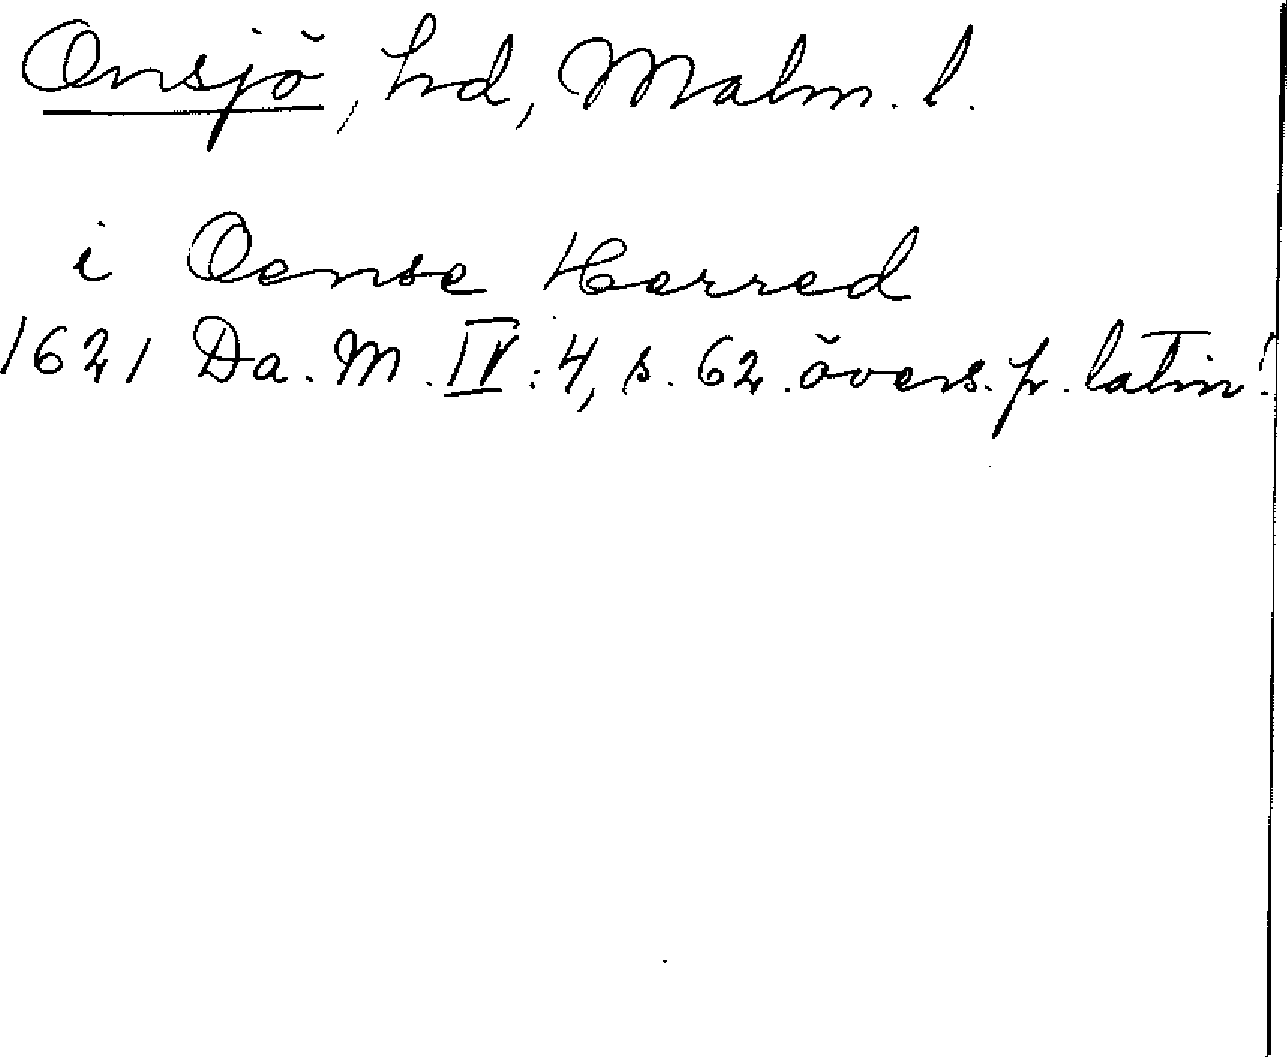 Onsjö, hd, Malm. l.
i Oense Herred
1621 Da. M. IV: 4, s. 62. övers. fr. latin!